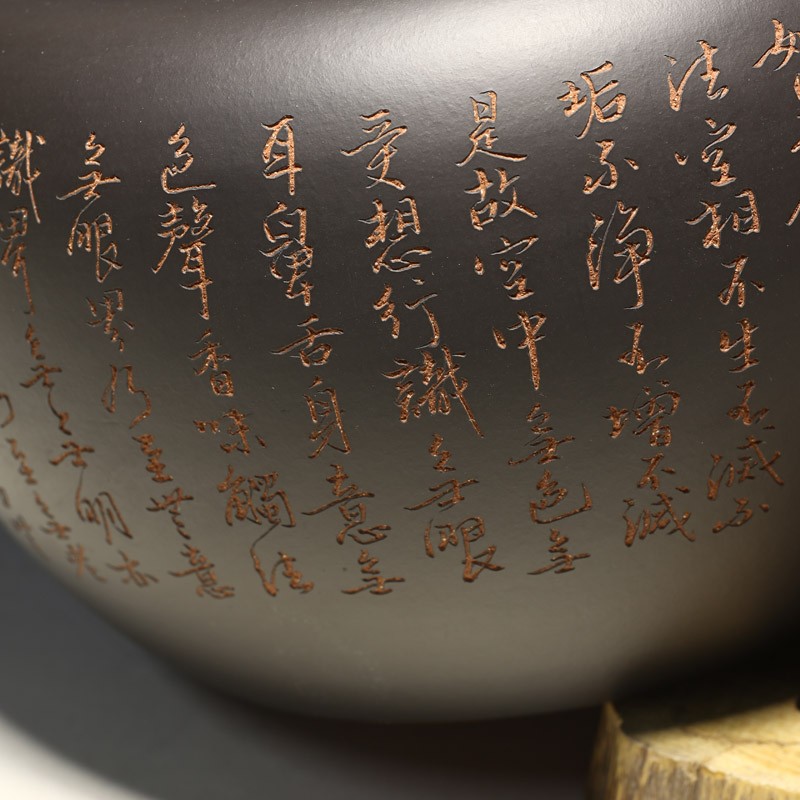 法空相不生不滅不
垢不淨不增不減
是故空中無色無
受想行識無眼
耳鼻舌身意無
色聲香味觸法
無眼界乃至無意
識界無無明亦